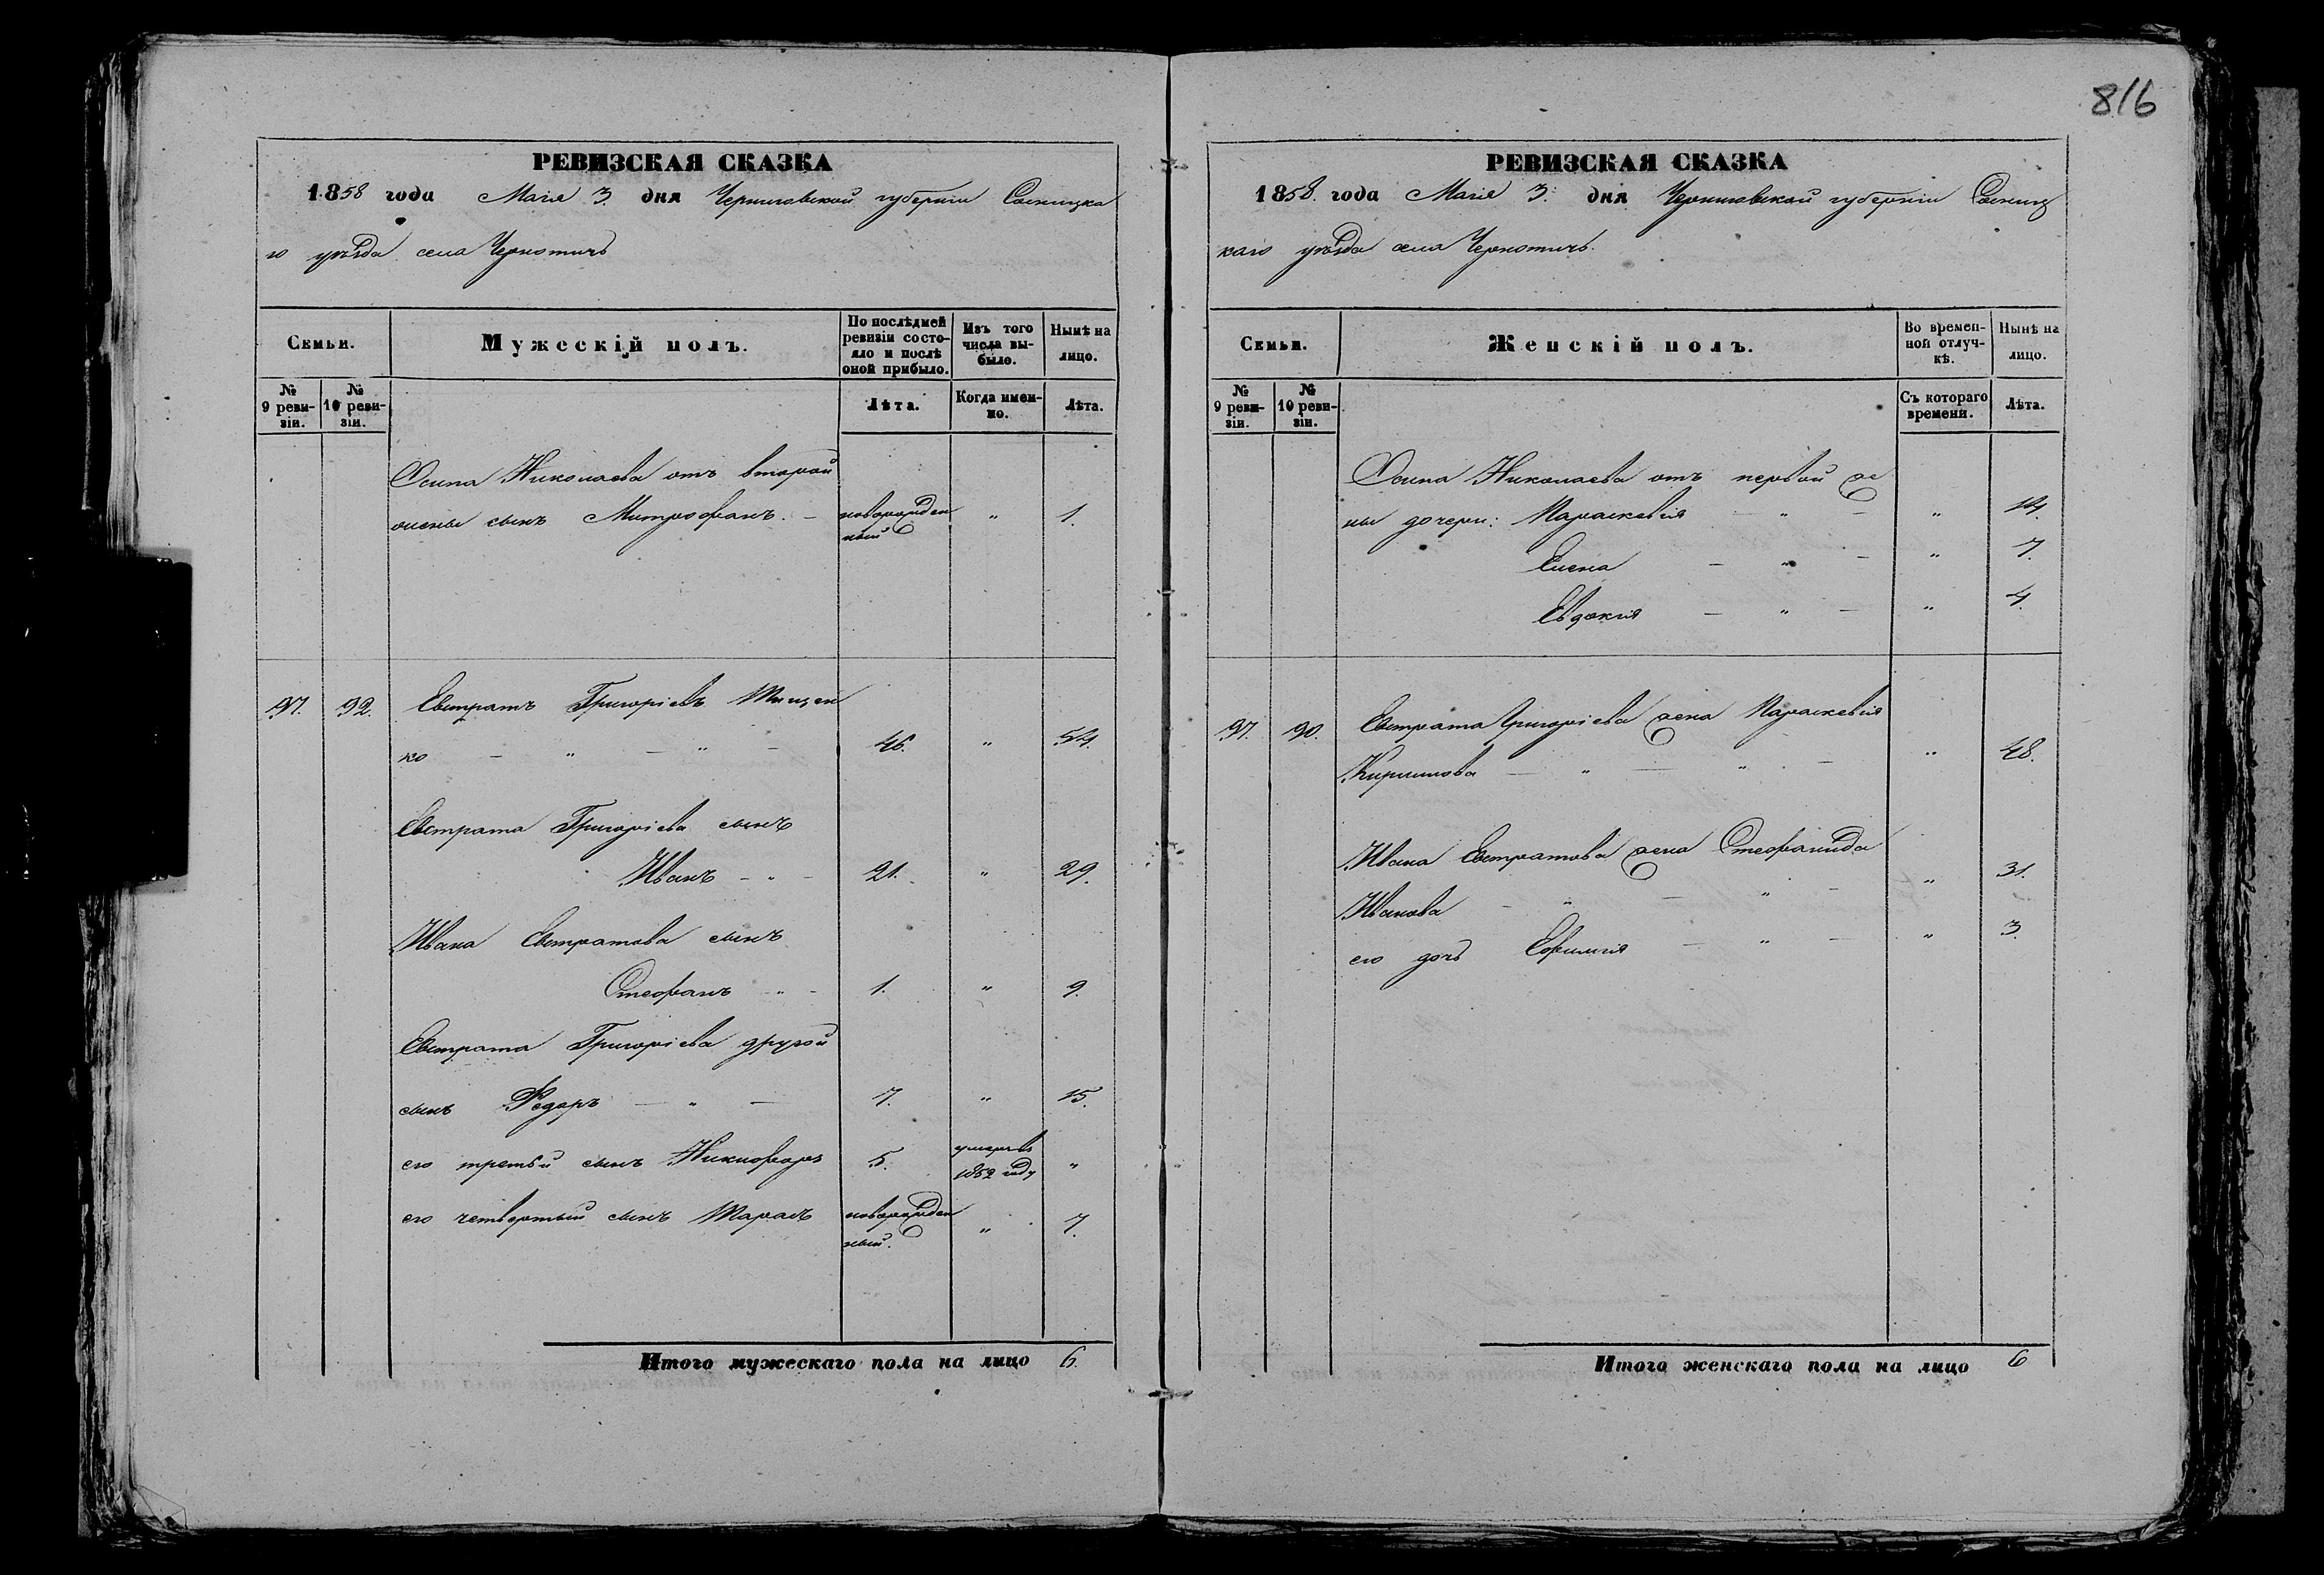 816
РЕВИЗСКАЯ СКАЗКА
1858 года Маія 3. дня Черниговской губерніи Сосницка
го уѣзда села Чернотичь
Семьи.
Мужескій полъ.
По послѣдней ревизіи состояло и послѣ оной прибыло.
Изъ того числа выбыло.
Нынѣ на лицо.
№ 9 ревизіи.
№ 10 ревизіи.
Лѣта.
Когда именно.
Лѣта.
Осипа Николаева отъ второй
жены сынъ Митрофанъ. – новорожден „ 1.
ный
97. 92. Евстратъ Григоріевъ Тищен
ко – „ – „ – 46. „ 54.
Евстрата Григоріева сынъ
Иванъ – „ – 21. „ 29.
Ивана Евстратова сынъ
Стефанъ – „ – 1. „ 9.
Евстрата Григоріева другой
сынъ Федоръ – „ – 7. „ 15.
его третій сынъ Никифоръ 5. умеръ въ 1852 году „
его четвертый сынъ Тарасъ новорожден „ 7.
ный.
Итого мужескаго пола на лицо 6.
РЕВИЗСКАЯ СКАЗКА
1858. года Маія 3. дня Черниговской губерніи Сосниц
каго уѣзда села Чернотичь.
Семьи.
Женскій полъ.
Во временной отлучкѣ.
Нынѣ на лицо.
№ 9 ревизіи.
№ 10 ревизіи.
Съ котораго времени.
Лѣта.
Осипа Николаева отъ первой же
ны дочери: Параскевія – „ – „ 14.
Елена – „ – „ 7.
Евдокія – „ – „ 4.
97. 90. Евстрата Григоріева жена Параскевія
Кирилова – „ – „ – „ 48.
Ивана Евстратова жена Стефанида
Иванова – „ – „ – „ 31.
его дочь Ефимія – „ – „ 3.
Итого женскаго пола на лицо 6